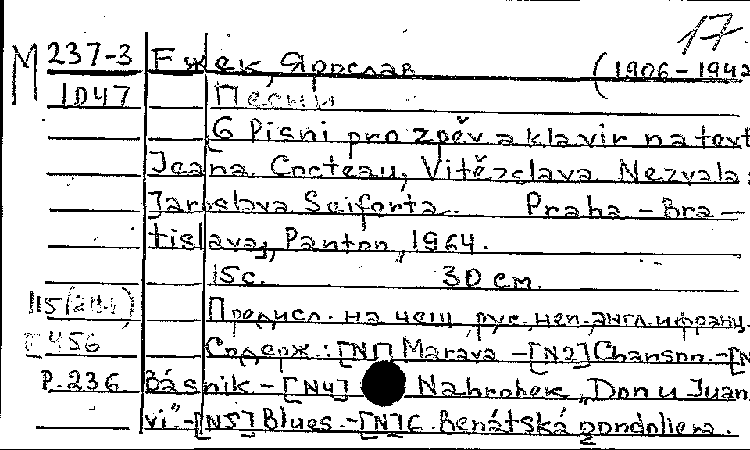 17.
М 237-3 Ежек, Ярослав (1906-1942
1047 Песни
6 Pisni pro zpěv a klavir na text
Jeana Cocteau, Vitězslava Nezvala
Jaroslava Seiferta. Praha - Bra-
tislava, Panton, 1964.
15 с. 30 см.
115 Предисл. на чеш, рус, нем, англ. и франц.
456 Содерж: [N1] Marava - [N2] Chanson. - [N
Р. 236 Básnik - [N4] Nahrobek „Donu Juan
vi" - [N5] Blues. - [N]6. Benátská gondoliera.